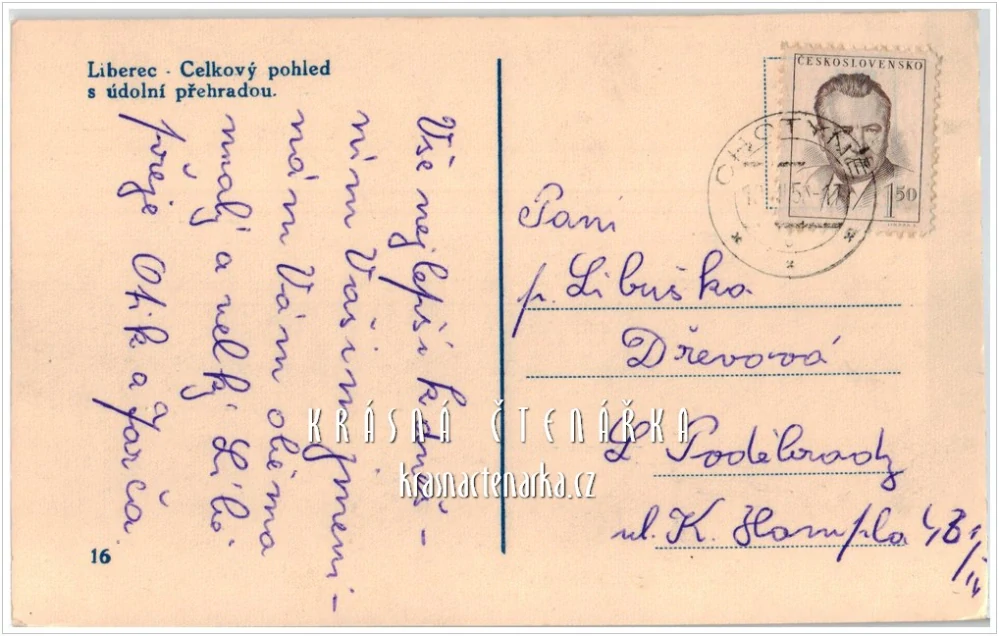 Liberec - Celkový pohled
s údolní přehradou.
Vše nejlepší k Vaš-
ním Vašim jmeni-
nám Vám oběma
malý a velký Libě
přeje Otik a Jarča
ČESKOSLOVENSKO
1 50
CHOTYNĚ
Paní
p. Libuška
Dřevová
L. Poděbrady
ul. K. Hampla
KRÁSNÁ ČTENÁŘKA
krasnactenarka.cz
16